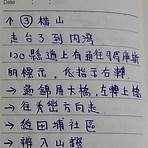 Date:
↑ ③ 橫山
走台3到內灣
120縣道上有往馬
明標示，依指示右轉
→ 過錦屏大橋，左轉上橋
→ 往天密方向走
→ 經田埔社區
→ 轉入山